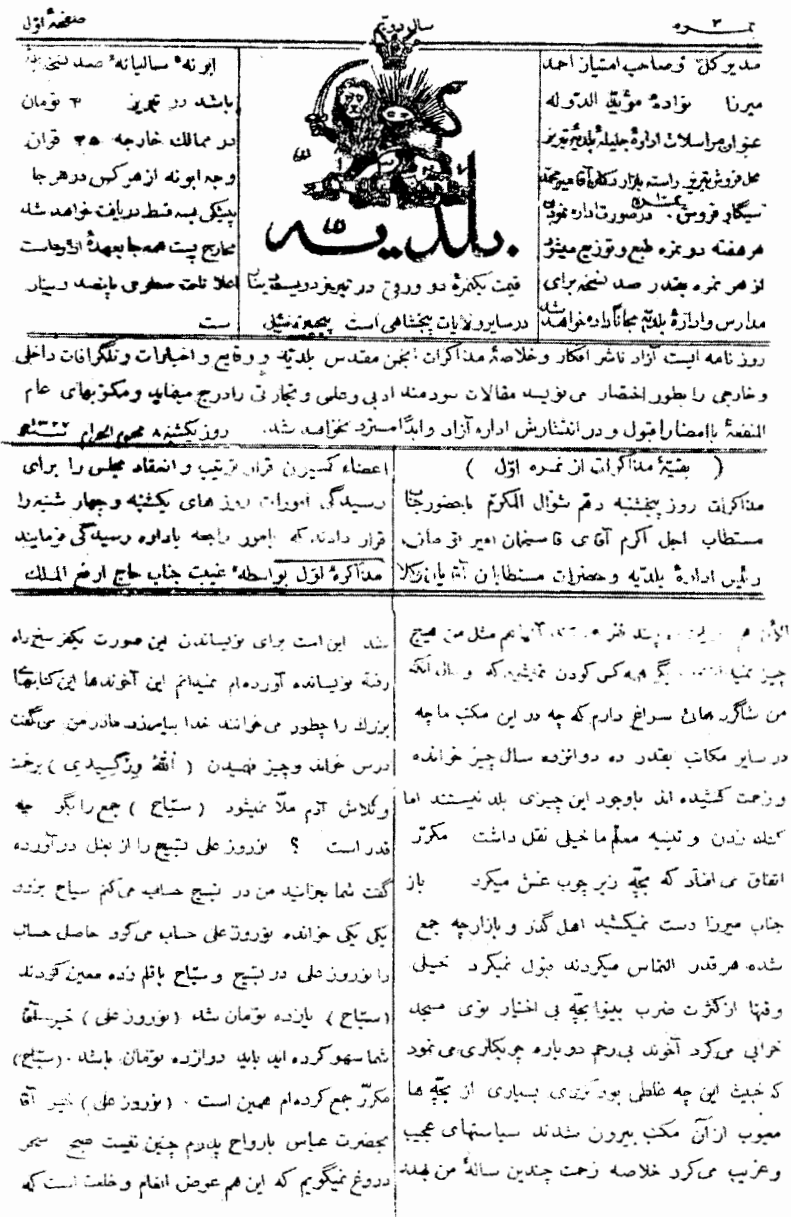 نمره ۳
سال دویم
صفحهٔ اوّل
مدیر کلّ و صاحب امتیاز احمد
میرزا نوادهٔ مؤیّد الدوله
عنوان مراسلات ادارهٔ جلیلهٔ بلدیهٔ تبریز
محل فروش تبریز راسته بازار دکان آقا میر محمّد
سیگار فروش
در صورت اداره نمودن
هر هفته دو نمره طبع و توزیع میشود
از هر نمره بقدر صد نسخه برای
مدارس و ادارهٔ بلدیّه مجاناً داده خواهد شد
بلدیه
قیمت یکنمرهٔ دو ورقی در تبریز دویست دینار
در سایر ولایات پنجشاهی است
ابونهٔ سالیانهٔ صد نسخه
باشد در تبریز ۳ تومان
در ممالک خارجه ۳۵ قران
وجه ابونه از هر کس در هر جا
پیشکی بسه قسط دریافت خواهد شد
مخارج پست همه جا بعهدهٔ اداره است
اعلانات سطری پانصد دینار
است
روزنامه ایست آزاد ناشر افکار و خلاصهٔ مذاکرات انجمن مقدس بلدیّه و وقایع و اخبارات و تلگرافات داخلی
و خارجی را بطور اختصار می نویسد مقالات سودمند ادبی و علمی و تجارتی را درج مینماید و مکتوبهای عام
المنفعهٔ با امضا را قبول و در انتشارش اداره آزاد و ابداً مسترد نخواهد شد.
روز یکشنبه ۸ محرم الحرام ۱۳۲۶
( بقیّهٔ مذاکرات از نمره اوّل )
مذاکرات روز پنجشنبه دهم شوّال المکرّم با حضور جناب
مستطاب اجل اکرم آقای قاسمخان امیر تومان
رئیس ادارهٔ بلدیّه و حضرات مستطابان آقایان وکلا
اعضاء کمسیون قرار ترتیب و انعقاد مجلس را برای
رسیدگی امورات روز های یکشنبه و چهار شنبه را
قرار دادند که بامور راجعه باداره رسیدگی فرمایند
مذاکرهٔ اوّل بواسطهٔ غیبت جناب حاج ارفع الملک
الآن هم چند نفر هستند آنها هم مثل من هیچ
چیز نمیدانند دیگر همه کس کودن نمیشود که و حال آنکه
من شاگرد هائی سراغ دارم که چه در این مکتب ما چه
در سایر مکاتب بقدر ده دوانزده سال چیز خوانده
و زحمت کشیده اند باوجود این چیزی بلد نیستند اما
کتک زدن و تنبیه معلّم ما خیلی نقل داشت مکرّر
اتفاق می افتاد که بچّه زیر چوب غش میکرد باز
جناب میرزا دست نمیکشید اهل گذر و بازارچه جمع
شده هر قدر التماس میکردند قبول نمیکرد خیلی
وقتها از کثرت ضرب بینوا بچّه بی اختیار توی مسجد
خرابی می کرد آخوند بی رحم دو باره چوبکاری می نمود
که خبیث این چه غلطی بود کردی بسیاری از بچّه ها
معیوب از آن مکتب بیرون شدند سیاستهای عجیب
و غریب می کرد خلاصه زحمت چندین سالهٔ من بهدر
شد این است برای نویساندن این صورت یکفرسخ راه
رفته نویسانده آورده ام نمیدانم این آخوندها این کتابهای
بزرگ را چطور می خوانند خدا بیامرزد مادر من می گفت
درس خواند و چیز فهمیدن ( الله ورگسیدی ) بزحمت
و تلاش آدم ملّا نمیشود ( سیّاح ) جمع را بگو چه
قدر است ؟ نوروز علی تسبیح را از بغل در آورده
گفت شما بخوانید من در تسبیح حساب می کنم سیاح بروی
یکی یکی خوانده نوروز علی حساب می کرد حاصل حساب
را نوروز علی در تسبیح و سیّاح با قلم زده معین کردند
(سیّاح) یازده تومان شد (نوروز علی) خیر آقا
شما سهو کرده اید باید دوازده تومان باشد . (سیّاح)
مکرّر جمع کرده ام همین است . (نوروز علی) خیر آقا
بحضرت عباس بارواح پدرم چنین نیست صبح سحر
دروغ نمیگویم که این هم عوض انعام و خلعت است که